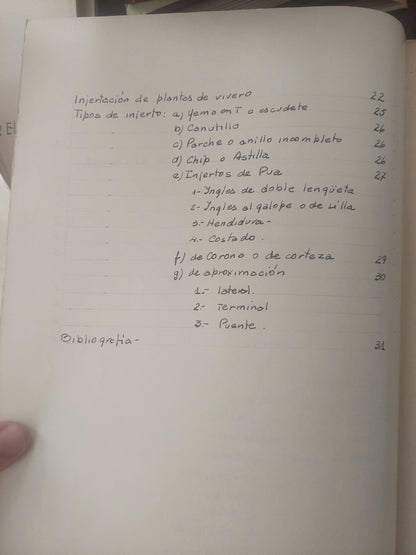 Injertación de plantas de vivero 22
Tipos de injerto: a) Yema en T o escudete 25
b) Canutillo 26
c) Parche o anillo incompleto 26
d) Chip o Astilla 26
e) Injertos de Pua 27
1- Ingles de doble lengüeta
2- Ingles al galope o de silla
3- Hendidura-
4- Costado.
f) de Corona o de corteza 29
g) de aproximación 30
1.- lateral.
2- Terminal
3- Puente.
Bibliografía- 31